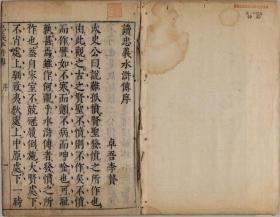 讀忠義水滸傳序
卓吾李贄
太史公曰說難孤憤賢聖發憤之所作也
由此觀之古之賢聖不憤則不作矣不憤
而作譬如不寒而顫不病而呻吟也可恥
孰甚焉雖作何觀乎水滸傳者發憤之所
作也蓋自宋室不競冠屨倒施大賢處下
不肖處上馴致夷狄處上中原處下一時
序